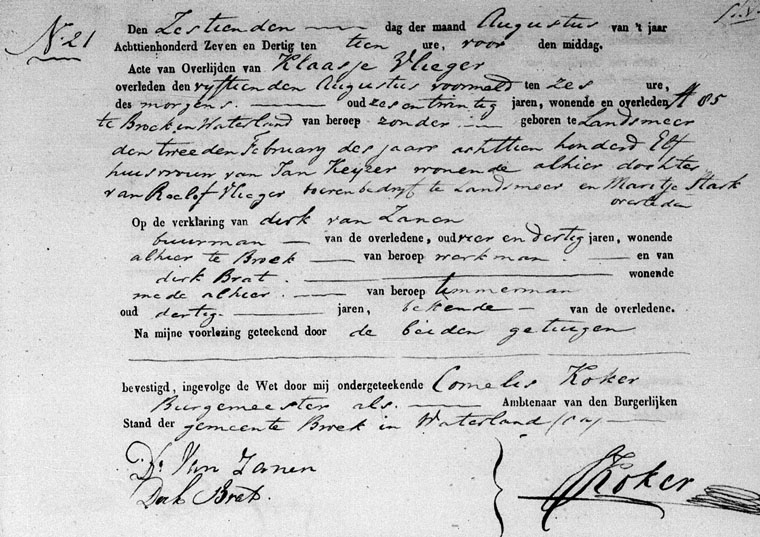 N. 21
Den Zestienden dag der maand Augustus van 't jaar
Achttienhonderd Zeven en Dertig ten tien ure, voor den middag.
Acte van Overlijden van Klaasje Vlieger
overleden den vyftienden Augustus voormeld ten zes ure,
des morgens. oud zes en twintig jaren, wonende en overleden # 85
te Broek in Waterland van beroep zonder geboren te Landsmeer
den tweeden February des jaars achttien honderd Elf
huisvrouw van Jan Keyzer wonende alhier dochter
van Roelof Vlieger boerenbedryf te Landsmeer en Maritje Stark
overleden
Op de verklaring van dirk van Zanen
buurman van de overledene, oud vier en dertig jaren, wonende
alhier te Broek van beroep werkman. en van
dirk Brat. wonende
mede alhier. van beroep timmerman
oud dertig. jaren, bekende van de overledene.
Na mijne voorlezing geteekend door de beiden getuigen
bevestigd, ingevolge de Wet door mij ondergeteekende Cornelis Koker
Burgemeester als. Ambtenaar van den Burgerlijken
Stand der gemeente Broek in Waterland
Dk Van Zanen
Dirk Brat.
Koker